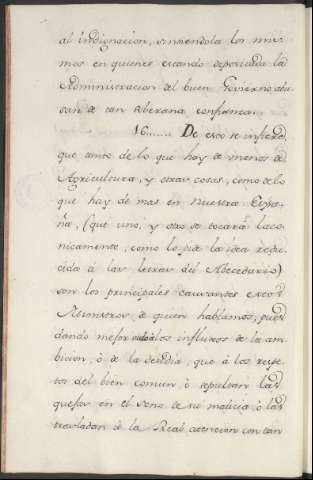 al indignacion, siniendola los mis-
mos en quienes estando deposicada la
Administracion del buen Govierno, abu-
san de tan soberana confianza.
16...... De esto se infiere
que tanto de lo que hay de menos de
Agricultura, y otras cosas, como de lo
que hay de mas en nuestra Espa-
ña, (que uno, y otro se tocará laco-
nicamente, como lo pide la idea redu-
cida á las letras del Abecedario)
son los principales causantes estos
Ministros de quien hablamos, pues
dando mejor oido á los influxos de la am-
bicion, ó de la desidia, que á los respe-
tos del bien comun ó sepultan las
quejas en el seno de su malicia, ó las
trasladan á la Real atencion con tan